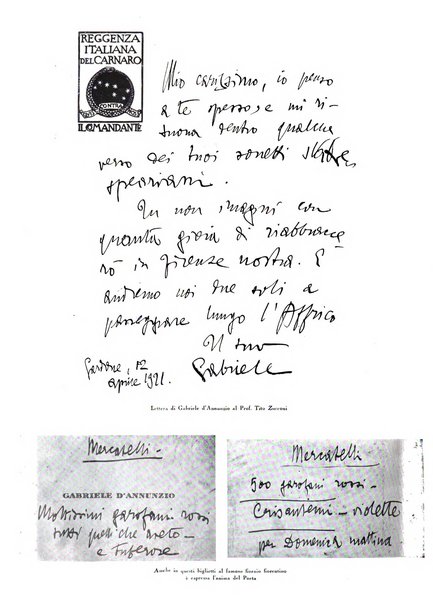 REGGENZA
ITALIANA
DEL CARNARO
CONTRA
IL COMANDANTE
Mio carissimo, io penso
a te spesso; e mi ri-
suona dentro qualche
verso dei tuoi sonetti shake-
speariani.
Tu non imagini con
quanta gioia ti riabbracce-
rò in Firenze nostra. E
andremo noi due soli a
passeggiare lungo l'Affrico
Il tuo
Gabriele
Gardone, 12
aprile 1921.
Lettera di Gabriele d'Annunzio al Prof. Tito Zucconi
Mercatelli -
GABRIELE D'ANNUNZIO
Moltissimi garofani rossi
tutti quelli che avete -
e tuberose
Mercatelli
500 garofani rossi -
Crisantemi - violette
per Domenica mattina
Anche in questi biglietti al famoso fioraio fiorentino
è espressa l'anima del Poeta